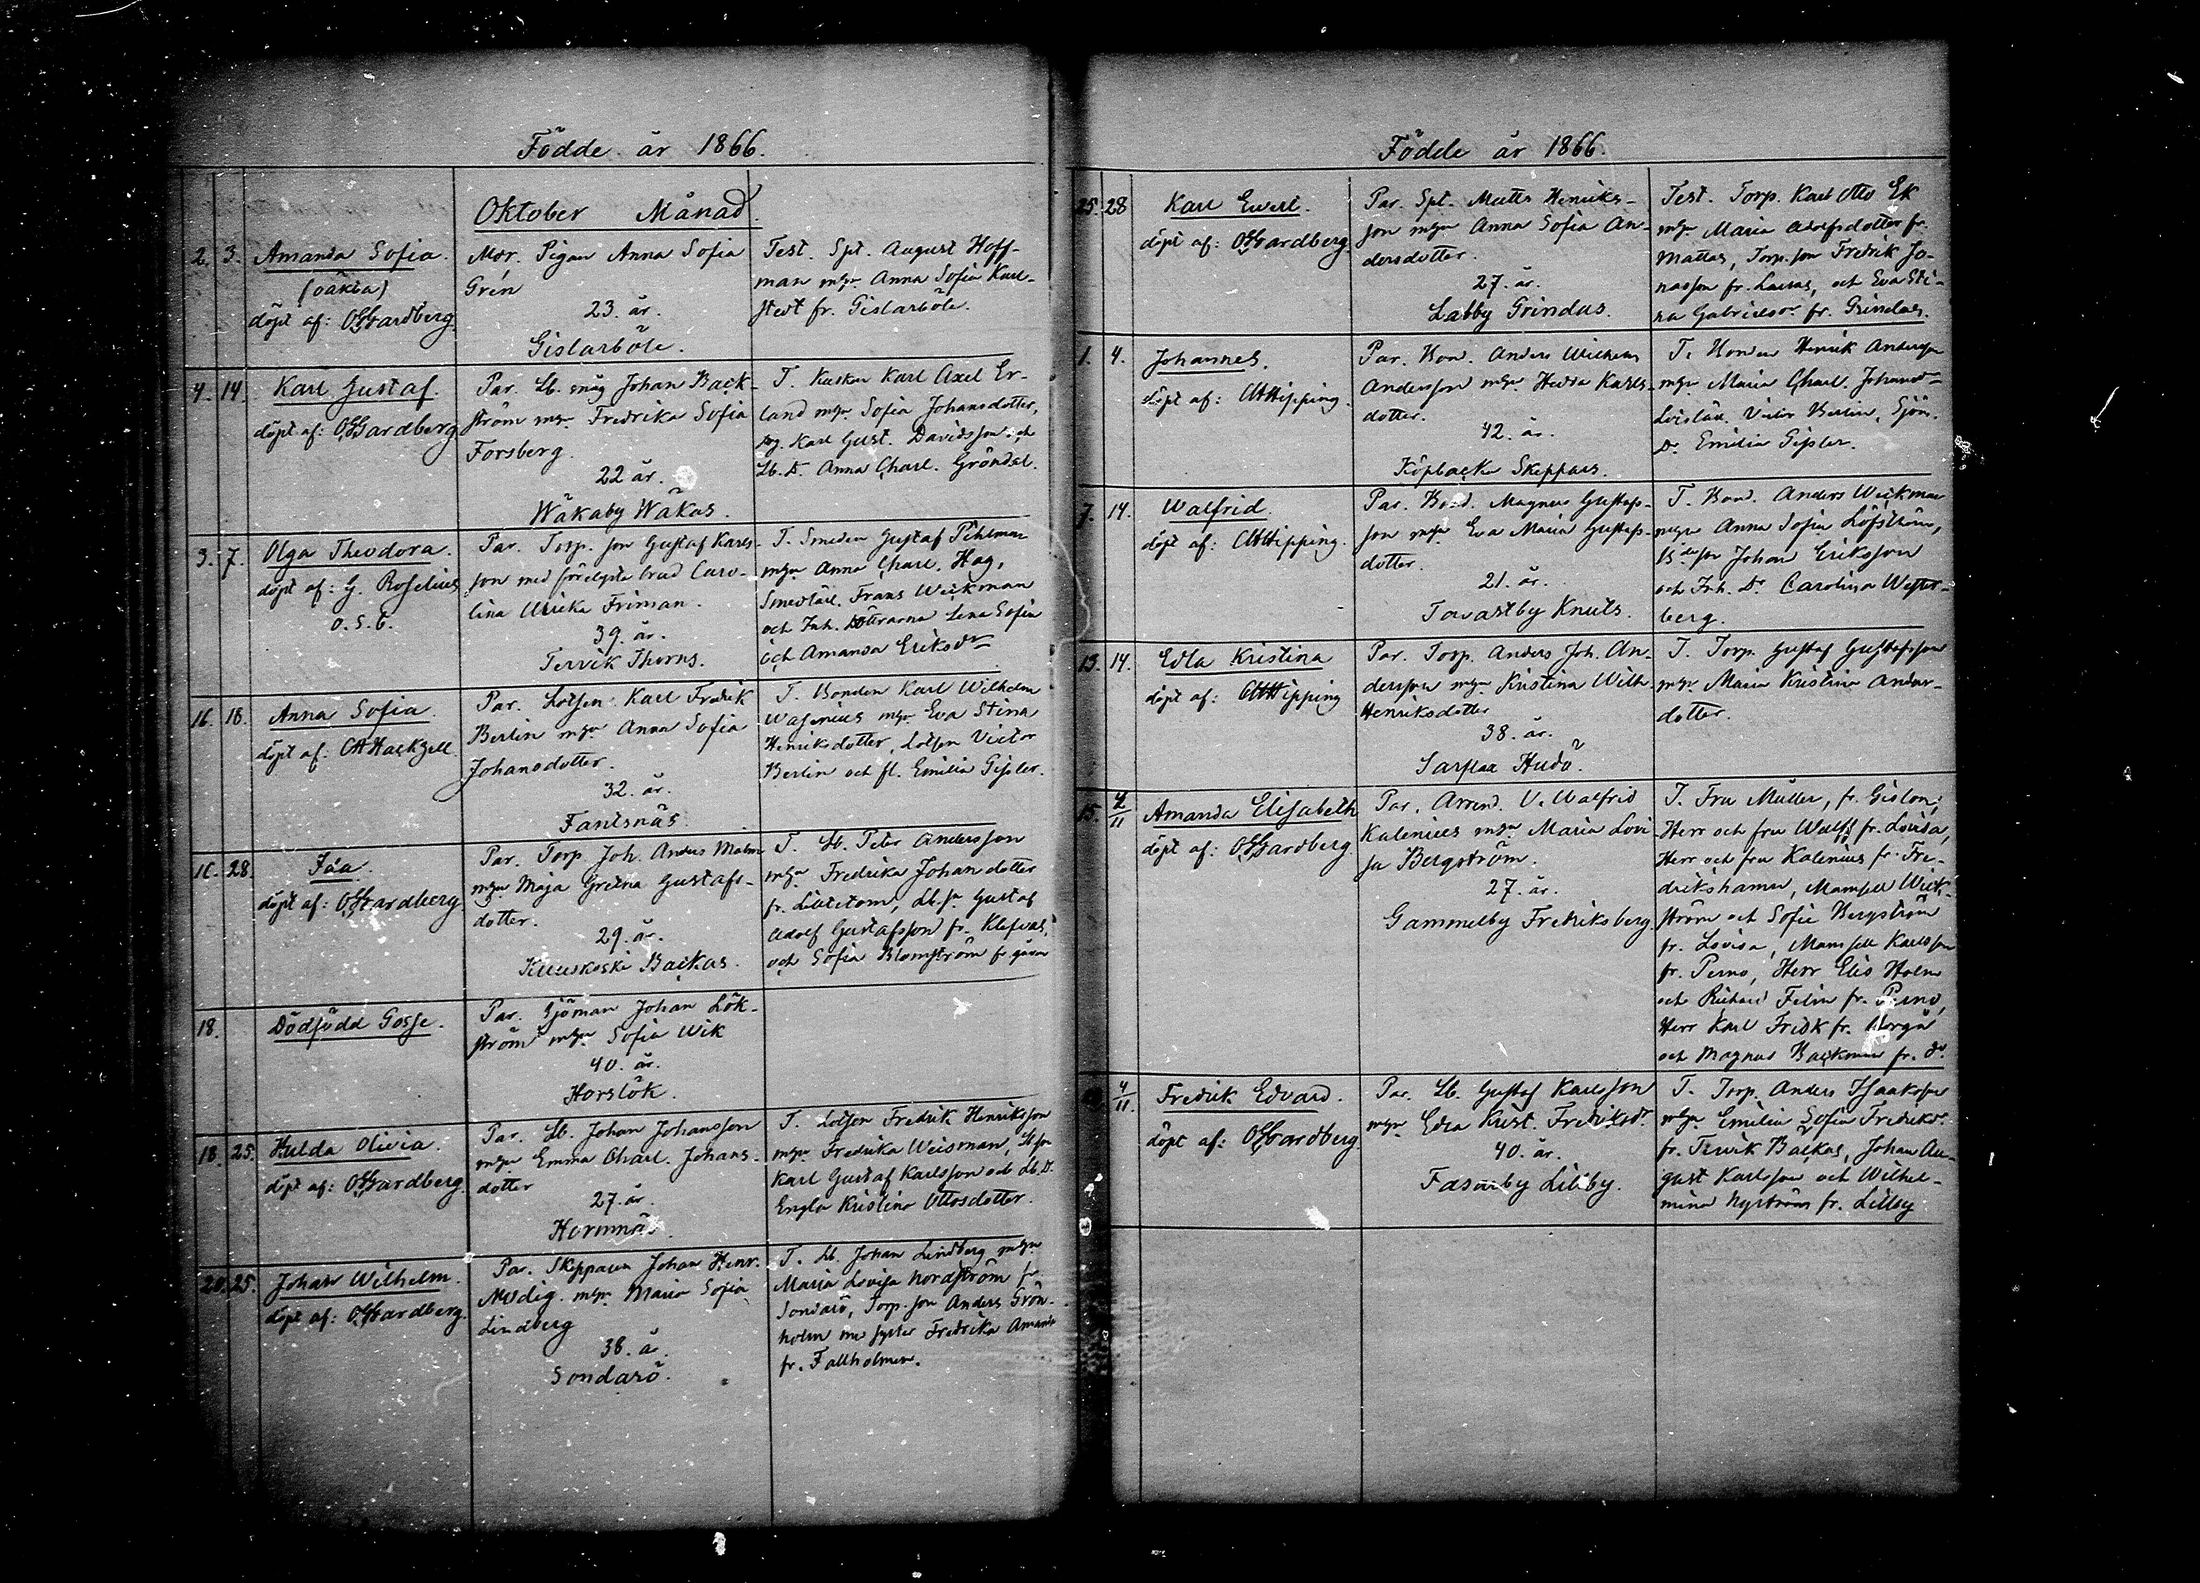 Födde år 1866.
Oktober Månad.
2. 3. Amanda Sofia.
(oäkta)
döpt af: OGardberg.
Mor. Pigan Anna Sofia
Grén
23. år.
Gislarböle.
Test. Spt. August Hoff-
man mhu Anna Sofia Karl-
stedt fr. Gislarböle.
4. 14. Karl Gustaf.
döpt af: OGardberg
Par. Lb. måg Johan Back-
ström mhu Fredrika Sofia
Forsberg.
22 år.
Wåkaby Wåkas.
T. Kusken Karl Axel Er-
land mhu Sofia Johansdotter,
Dg. Karl Gust. Davidsson och
Lb. D. Anna Charl. Gröndal.
3. 7. Olga Theodora.
döpt af: G. Roselius
o. S. C.
Par. Torp. son Gustaf Karls-
son med förelysta brud Caro-
lina Ulrika Friman.
39. år.
Tervik Thorns.
T. Smeden Gustaf Pihlman
mhu Anna Charl. Hag,
Smedlärl. Frans Weckman
och Inh. Döttrarna Lena Sofia
och Amanda Eriksdr
16. 18. Anna Sofia.
döpt af. Hackzell
Par. Lotsen Karl Fredrik
Berlin mhu Anna Sofia
Johansdotter.
32. år.
Fantsnäs
T. Bonden Karl Wilhelm
Wasenius mhu Eva Stina
Henriksdotter, Lotsen Victor
Berlin och fl. Emilia Gisler.
16. 28. Ida.
döpt af: OGardberg
Par. Torp. Joh. Anders Malm
mhu Maja Gretna Gustafs-
dotter.
29. år.
Kuuskoski Backas.
T. Lb. Peter Andersson
mhu Fredrika Johansdotter
fr. Lb. sn Gustaf
Adolf Gustafsson fr.
och Sofia Blomström fr gården
18. Dödfödd Gosse.
Par. Sjöman Johan Lök-
ström mhu Sofia Wik
40. år.
Horslök.
18. 25. Hulda Olivia.
döpt af: OGardberg.
Par. Lb. Johan Johansson
mhu Emma Charl. Johans-
dotter
27. år.
Hormnäs.
T. Lotsen Fredrik Henriksson
mhu Fredrika Weisman, Lb sn
Karl Gustaf Karlsson och Lb. D.
Engla Kristina Ottosdotter.
20. 25. Johan Wilhelm.
döpt af: OGardberg.
Par. Skepparen Johan Henr.
Modig. mhu Maria Sofia
Lindberg
38. år.
Sondarö.
T. Lb. Johan Lindberg mhu
Maria Lovisa Nordström fr
Sondarö, Torp. son Anders Grön-
holm me syster Fredrika Amanda
fr. Fallholmen.
Födde år 1866.
25. 28 Karl Evert.
döpt af: OGardberg.
Par. Spt. Matts Henriks-
son mhu Anna Sofia An-
dersdotter.
27. år.
Labby Grindas.
Test. Torp. Karl Otto Ek
mhu Maria Adolfsdotter fr.
Mattas, Torp. son Fredrik Jo-
nasson fr. Lassas, och Eva Sti-
na Gabrielsdr fr. Grindas.
1. 4. Johannes.
döpt af: Hipping.
Par. Bond. Anders Wilhelm
Andersson mhu Hedda Karls-
dotter.
42. år.
Köpbacka Skeppars.
T. Bonden Henrik Andersson
mhu Maria Charl. Johansdr
Victor Berlin, Sjöm.
Dr Emilia Gisler.
7. 14. Walfrid.
döpt af: Hipping.
Par. Bond. Magnus Gustafs-
son mhu Eva Maria Gustafs-
dotter.
21. år.
Tavastby Knuts.
T. Bond. Anders Weckman
mhu Anna Sofia Löfström,
Johan Eriksson
och Inh. Dr Carolina Wester-
berg.
13. 14. Edla Kristina
döpt af: Hipping
Par. Torp. Anders Joh. An-
dersson mhu Kristina Wilh.
Henriksdotter
38. år.
Sarflax Hudö.
T. Torp. Gustaf Gustafsson
mhu Maria Kristina Anders-
dotter.
15. 4/11 Amanda Elisabeth
döpt af: OGardberg
Par. Arrend. V. Walfrid
Kalenius mhu Maria Lovi-
sa Bergström.
27. år.
Gammelby Fredriksberg.
T. Fru Müller, fr. Gislom,
Herr och fru Wulff fr. Lovisa,
Herr och fru Kalenius fr. Fre-
drikshamn, Mamsell Wick-
ström och Sofie Bergström
fr. Lovisa, Mamsell Karlsson
fr. Perno, Herr Elis Holm
och Richard Felin fr. Perno,
Herr Karl Fridk fr. Borgå
och Magnus Backman fr. do.
4/11. Fredrik Edvard.
döpt af: OGardberg
Par. Lb. Gustaf Karlsson
mhu Edla Krist. Fredriksdr.
40. år.
Fasarby Lillby.
T. Torp. Anders Isaaksson
mhu Emilia Sofia Fredriksdr.
fr. Tervik Backas, Johan Au-
gust Karlsson och Wilhel-
mina Nyström fr. Lillby